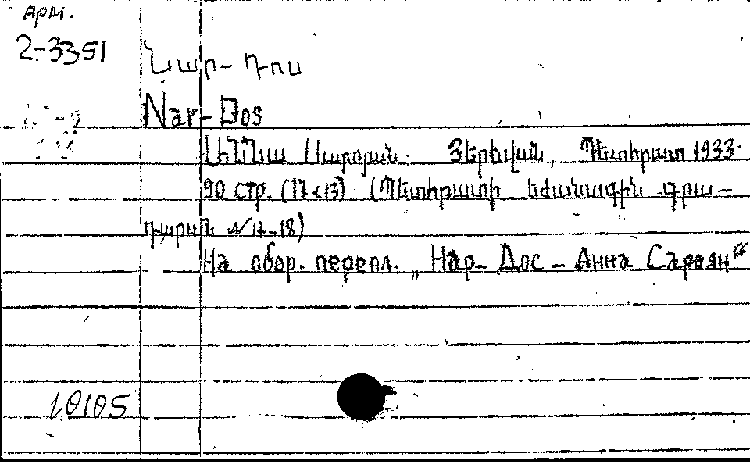 Арм.
2-3351
Նար-Դոս
Nar-Dos
Աննա Սարոյան. Յերեվան, Պետհրատ 1933.
90 стр. (17 х 13) (Պետհրատի եժանագին գրա-
դարան № 17-18)
На обор. перепл. „Нар-Дос - Анна Сароян“
10105